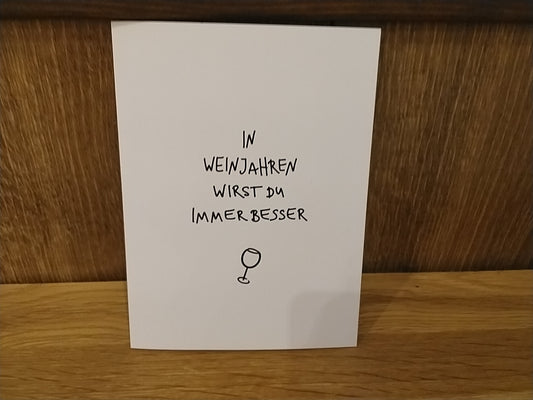 IN
WEINJAHREN
WIRST DU
IMMER BESSER